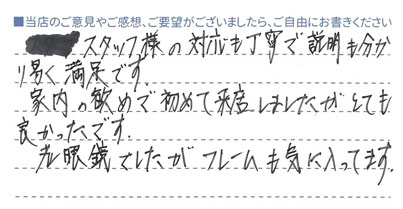 ■当店のご意見やご感想、ご要望がございましたら、ご自由にお書きください
スタッフ様の対応も丁寧で説明も分か
り易く満足です。
家内の勧めで初めて来店しましたがとても
良かったです。
老眼鏡でしたがフレームも気に入ってます。